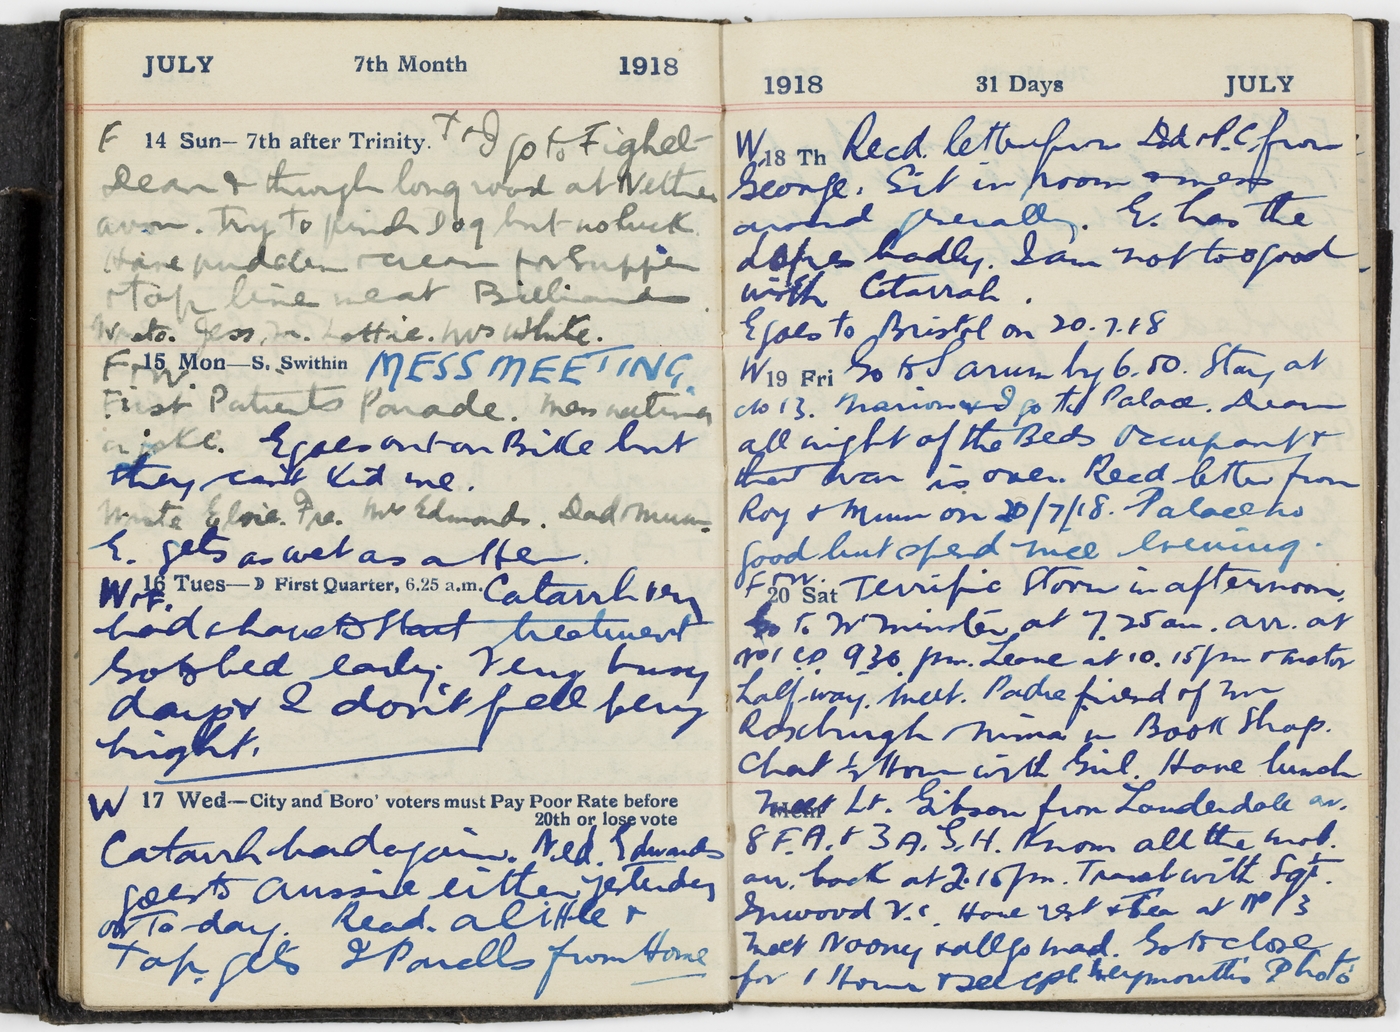 JULY 7th Month 1918
F 14 Sun— 7th after Trinity. T & I go to Fighel-
Dean & through long wood at Nether
avon. Try to find Dog but no luck.
Have pudden & cream for Supper
& top line meat Billiards
Wrote. Jess, Lottie. Mrs White.
F 15 Mon—S. Swithin MESS MEETING.
First Patients Parade. Mess meeting
E goes out on Bike but
they can't kid me.
Wrote Elsie. Mr Edmonds. Dad & Mum
E. gets as wet as a Hen.
W & F. 16 Tues—☽ First Quarter, 6.25 a.m. Catarrh very
bad & have to Start treatment
Go to bed early. Very busy
day & I don't feel very
bright.
W 17 Wed—City and Boro' voters must Pay Poor Rate before
20th or lose vote
Catarrh bad again. Ned. Edwards
goes to Aussie either yesterday
or To-day. Read. a little &
Tap. gets 2 Parcells from Home
1918 31 Days JULY
W 18 Th Recd. letter from Dad & P.C. from
George. Sit in room & mess
around generally. E. has the
badly. I am not too good
with Catarrah.
E goes to Bristol on 20.7.18
W 19 Fri Go to Sarum by 6.50. Stay at
No 13. Marion & I go to Palace. Dream
all night of the Beds Occupant &
that war is over. Recd letter from
Roy & Mum on 20/7/18. Palace no
good but spend nice Evening.
F 20 Sat Terrific Storm in afternoon.
Go to W'minster at 7.25am. arr. at
No 1 CD 9.30 pm. Leave at 10.15pm & motor
half way. Meet. Padre friend of Mr
Roxburgh in Book Shop.
Chat ½ Hour with Girl. Have lunch
Mem
Meet Lt. Gibson from Lauderdale av.
8 F.A. & 3 A.G.H. Know all the mob.
arr. back at 2.15pm. Travel with Sgt.
Inwood V.C. Have rest & Tea at No 13
Meet Nooney & all go mad. Go to close
for 1 Hour & see Cpl Weymouth's Photo